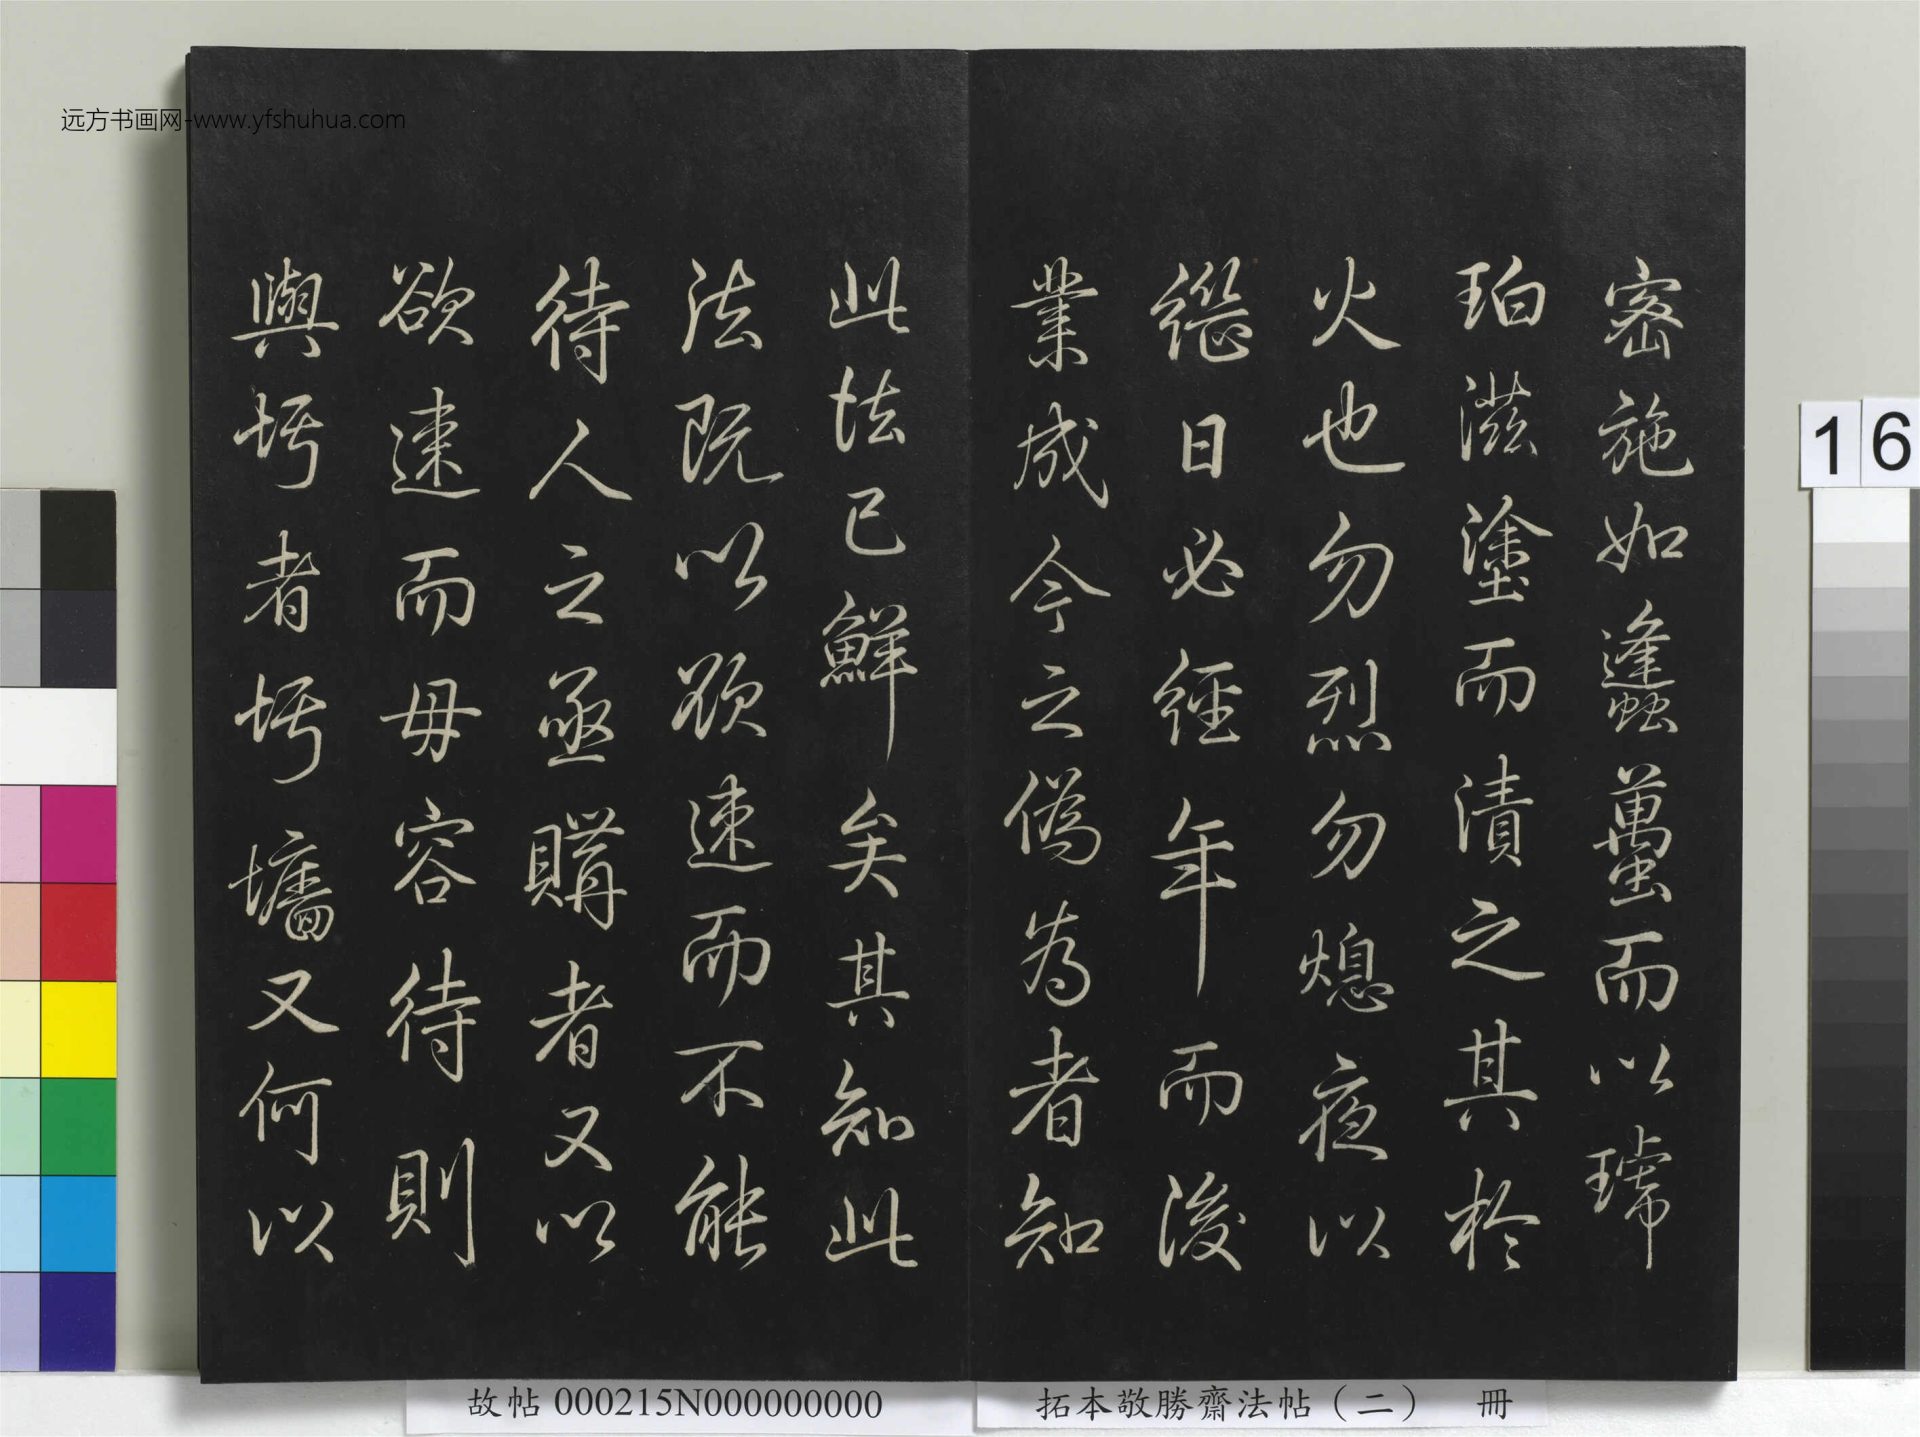 远方书画网-www.yfshuhua.com
密施如蠭蠆而以㻿
珀滋塗而漬之其於
火也勿烈勿熄夜以
繼日必經年而後
業成今之僞為者知
此法已鮮矣其知此
法既以欲速而不能
待人之亟購者又以
欲速而毋容待則
與圬者圬墻又何以
16
故帖 000215N000000000
拓本敬勝齋法帖（二） 冊